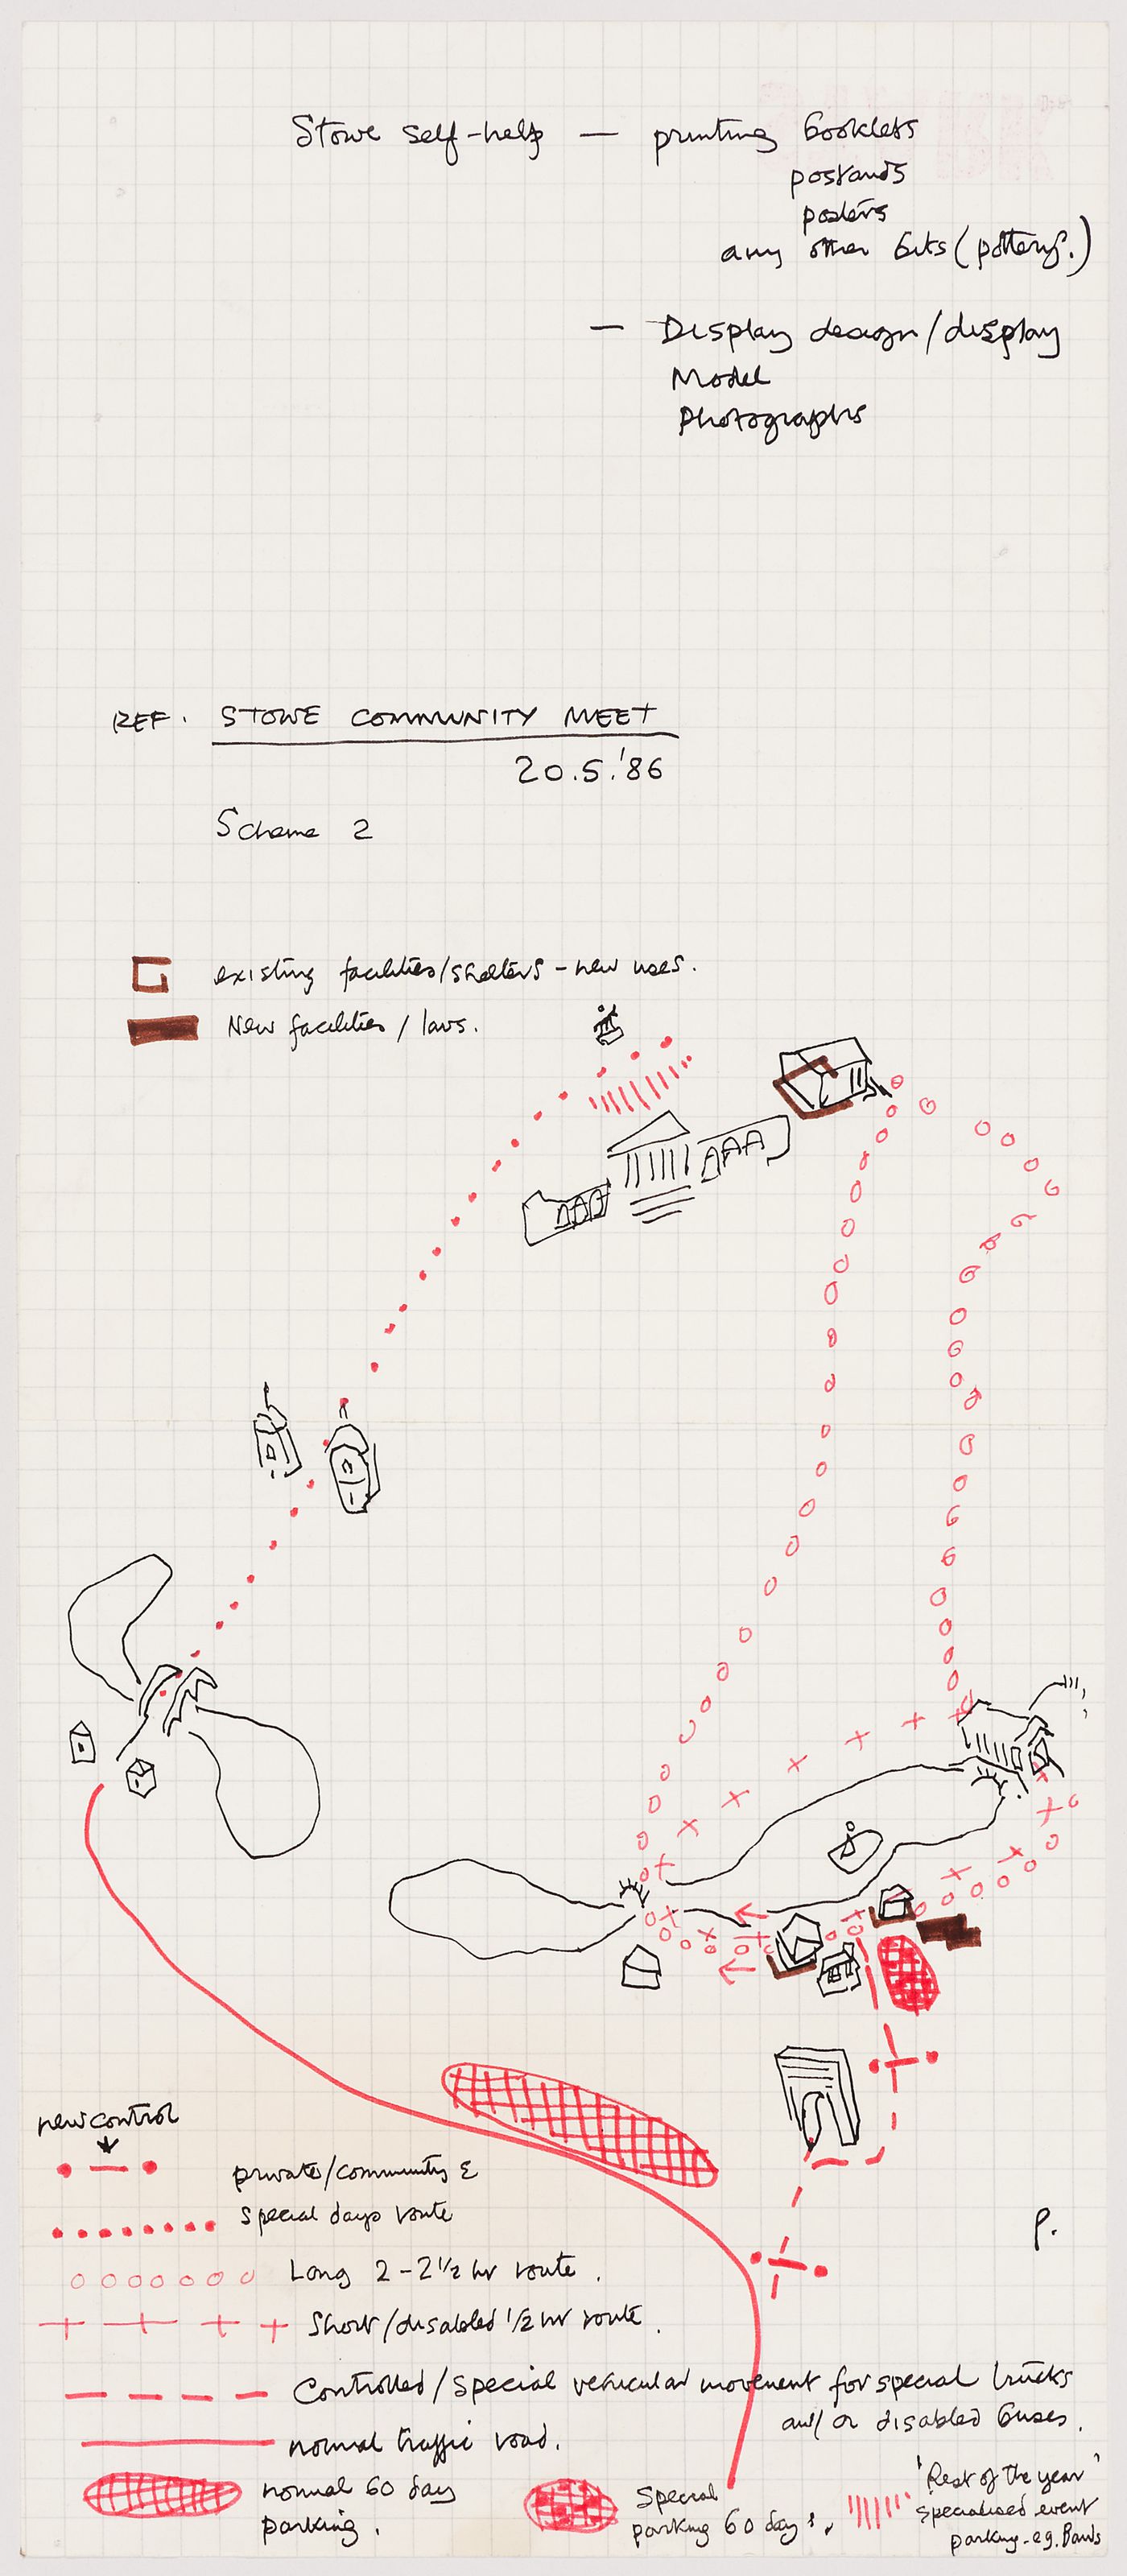 Stowe self-help — printing booklets
postcards
posters
any other bits (pottery.)
— Display design/display
Model
Photographs
REF. STOWE COMMUNITY MEET
20.5.'86
Scheme 2
existing facilities/shelters - new uses.
New facilities / lavs.
new control
private/community &
special days route
Long 2 - 2 1/2 hr route.
Short/disabled 1/2 hr route.
Controlled/Special vehicular movement for special trucks
and/or disabled buses.
normal traffic road.
normal 60 day
parking.
Special
parking 60 days.
'Rest of the year'
specialised event
parking - eg. Bands
P.